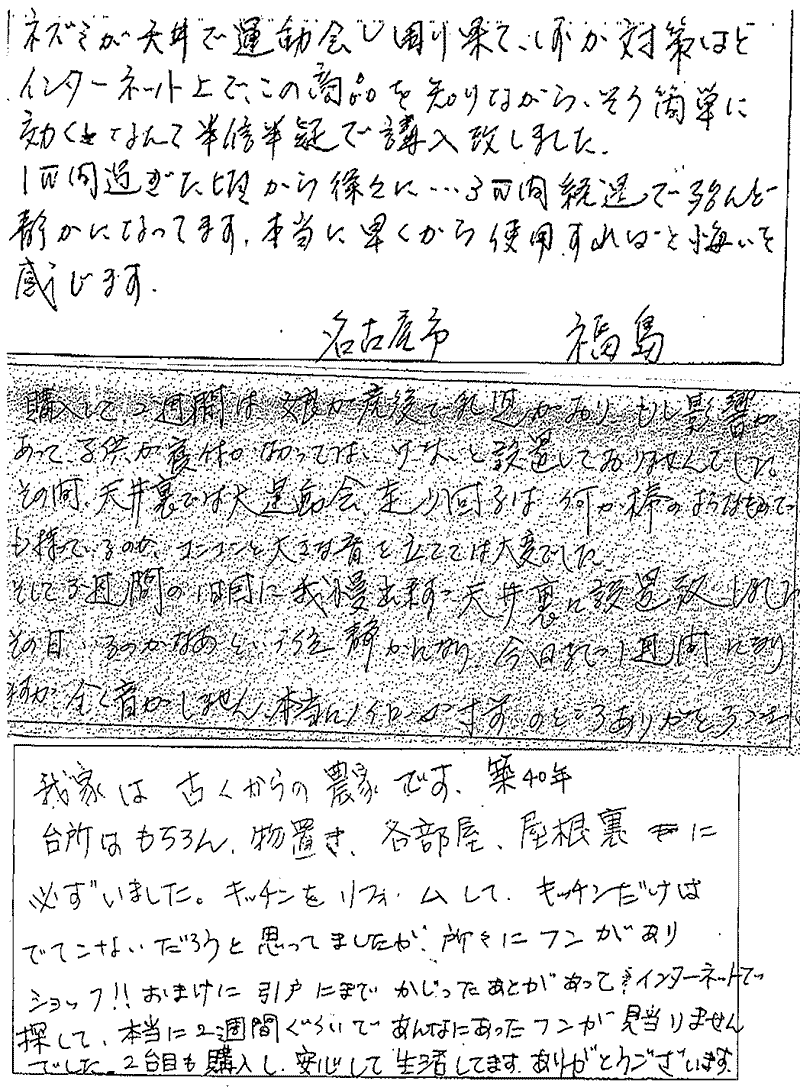 ネズミが天井で運動会し困り果て、何か対策はと
インターネット上で、この商品を知りながら、そう簡単に
効くとなんて半信半疑で購入致しました。
1W間過ぎた頃から徐々に…3W間経過で殆んど
静かになってます。本当に早くから使用すればと悔いを
感じます。
名古屋市 福島
購入して2週間は娘が産後で乳児がおり もし影響が
あって、子供が変体になってはいけないと設置しておりませんでした。
その間、天井裏では大運動会、走り回る 何か棒のようなもので
も持っているのか、コンコンと大きな音を立てては大変でした
そして3週間の1日目に我慢出来ず 天井裏に設置致しました
その日 いるのかなあという位 静かになり、今日までの1週間になり
ますが 全く音がしません。本当に のところありがとうござい
我家は古くからの農家です。築40年
台所はもちろん、物置き、各部屋、屋根裏に
必ずいました。キッチンをリフォームして、キッチンだけは
でてこないだろうと思ってましたが、所々にフンがあり
ショック!!おまけに引戸にまでかじったあとがあって インターネットで
探して、本当に2週間ぐらいであんなにあったフンが見当りません
でした。2台目も購入し、安心して生活してます。ありがとうございます。